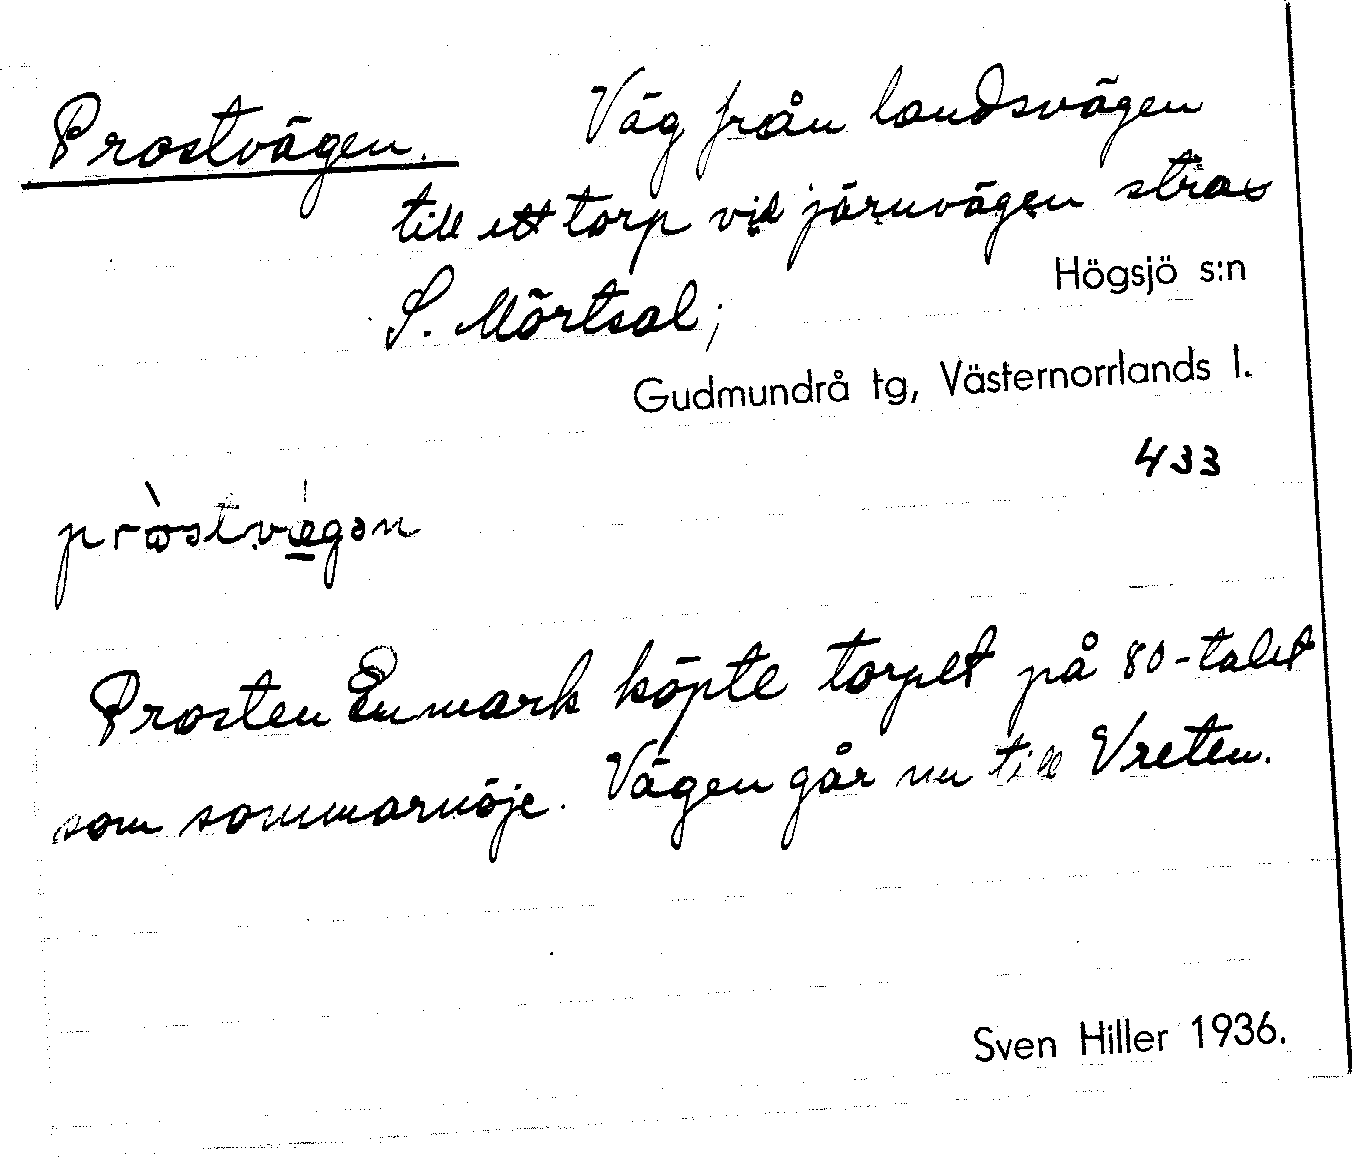 Prostvägen. Väg från landsvägen
till ett torp vid järnvägen strax
S. Mörtsal;
Högsjö s:n
Gudmundrå tg, Västernorrlands l.
433
Prosten Enmark köpte torpet på 80-talet
som sommarnöje. Vägen går nu till Vreten.
Sven Hiller 1936.